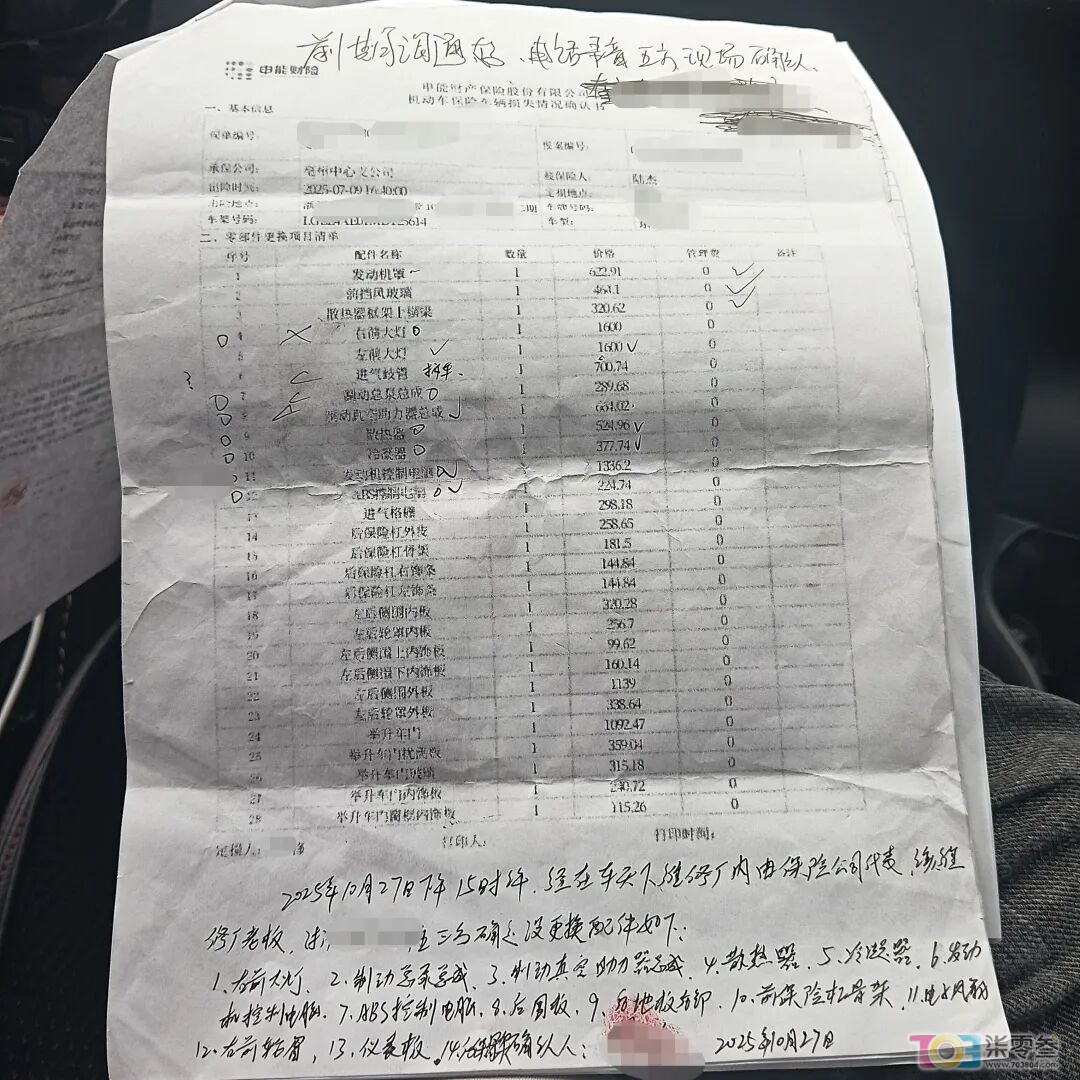 前期沟通好、电话录音 五方现场确认、
申能财险
申能财产保险股份有限公司
机动车保险车辆损失情况确认书
一、基本信息
保单编号：
报案编号：
承保公司： 亳州中心支公司 被保险人： 陆杰
出险时间： 2025-07-09 16:40:00 定损地点：
出险地点： 车牌号码：
车架号码： 车型：
二、零部件更换项目清单
序号 配件名称 数量 价格 管理费 备注
1 发动机罩 1 622.91 0
2 前挡风玻璃 1 464.1 0
3 散热器框架上横梁 1 320.62 0
4 右前大灯 1 1600 0
5 左前大灯 1 1600 0
6 进气歧管 拆车 1 700.74 0
7 制动总泵总成 1 289.68 0
8 制动真空助力器总成 1 664.02 0
9 散热器 1 524.96 0
10 冷凝器 1 377.74 0
11 发动机控制电脑 1 1336.2 0
12 ABS控制电脑 1 224.74 0
13 进气格栅 1 298.18 0
14 后保险杠外皮 1 258.65 0
15 后保险杠骨架 1 181.5 0
16 后保险杠右饰条 1 144.84 0
17 后保险杠左饰条 1 144.84 0
18 左后侧围内板 1 320.28 0
19 左后轮罩内板 1 256.7 0
20 左后侧围上内饰板 1 99.62 0
21 左后侧围下内饰板 1 160.14 0
22 左后侧围外板 1 1139 0
23 左后轮罩外板 1 338.64 0
24 举升车门 1 1092.47 0
25 举升车门扰流板 1 359.04 0
26 举升车门玻璃 1 315.18 0
27 举升车门内饰板 1 240.72 0
28 举升车门窗框内饰板 1 115.26 0
定损人： 净 打印人： 打印时间：
2025年10月27日下午15时许，经在车天下维修厂内由保险公司代表，维
修厂老板，三方确定没更换配件如下：
1.右前大灯、2.制动总泵总成、3.制动真空助力器总成、4.散热器、5.冷凝器、6.发动
机控制电脑、7.ABS控制电脑、8.后围板、9.后地板 10.前保险杠骨架、11.电子风扇
12.右前 13.仪表板、14. 确认人： 2025年10月27日
703 柒零叁
www.703804.com